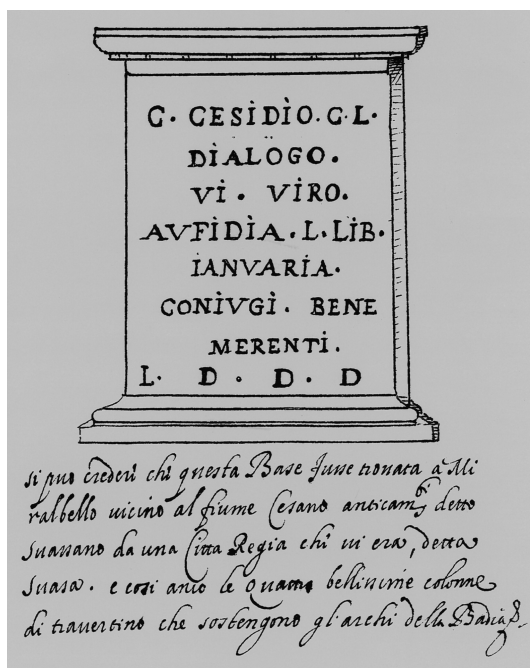 C. CESIDIO. C. L.
DIALOGO.
VI. VIRO.
AVFIDIA. L. LIB.
IANVARIA.
CONIVGI. BENE
MERENTI.
L. D. D. D
si puo creder chi questa Base fusse trouata à Mi
ralbello uicino al fiume Cesano anticam detto
Suassano da una Citta Regia chi ui era, detta
Suasa. e cosi anco le quattro bellissime colonne
di trauertino che sostengono gl'archi della Badia